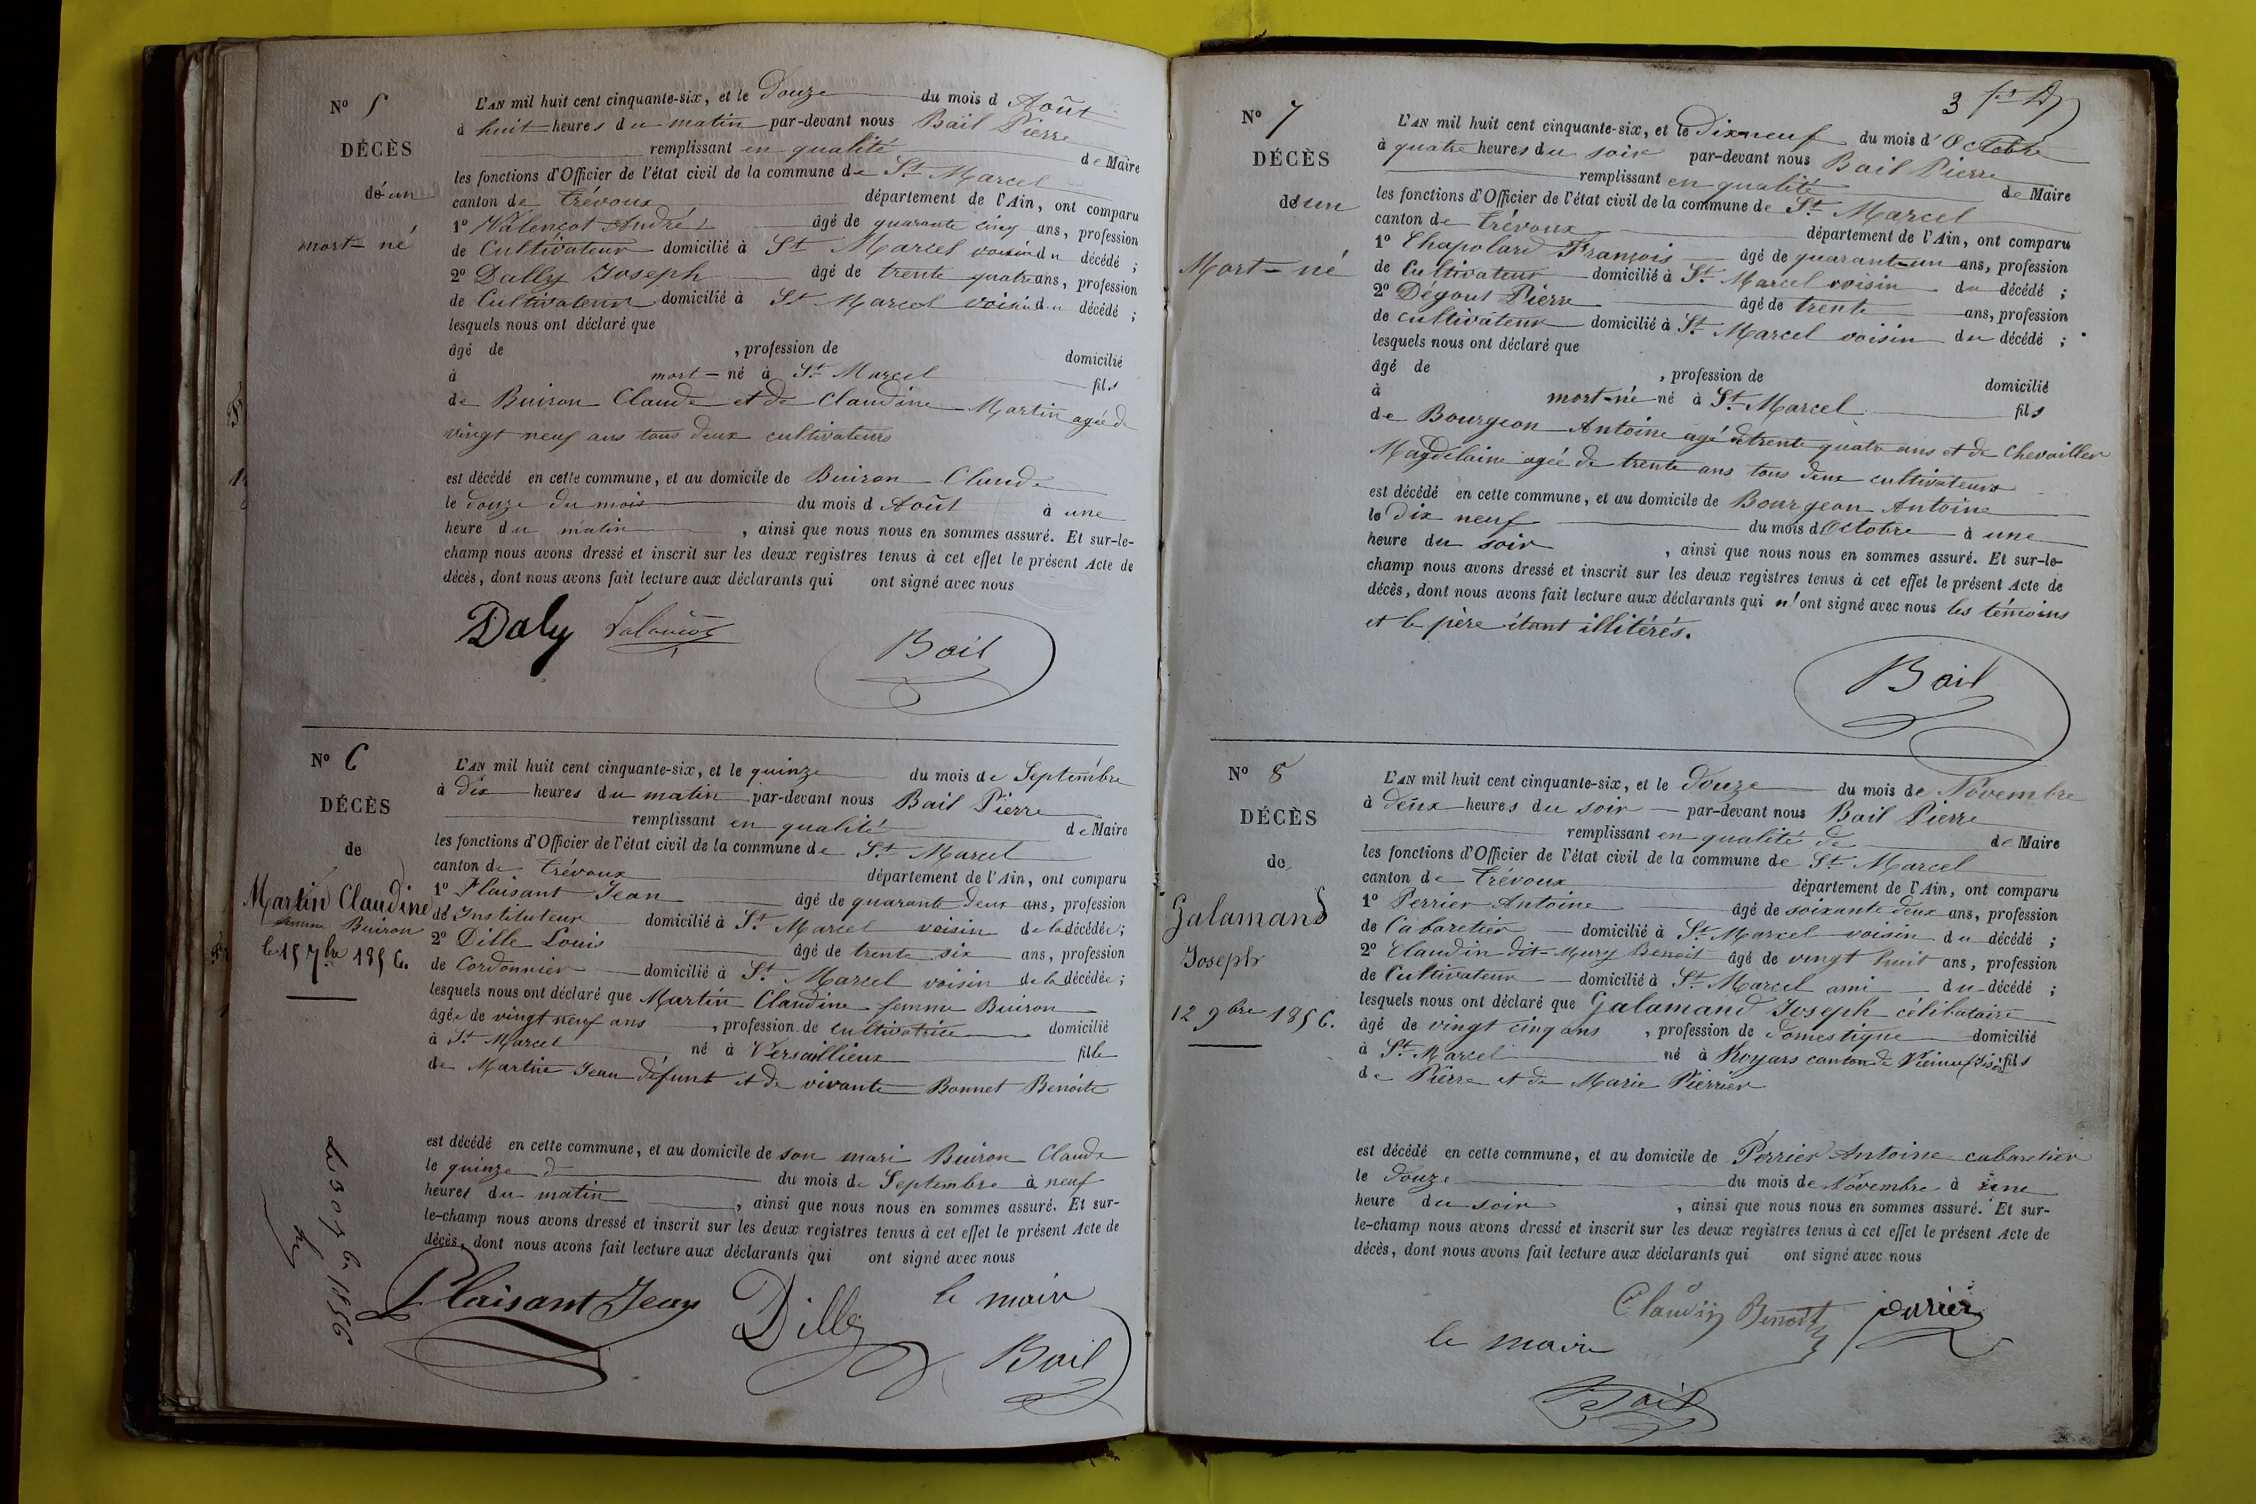 N° 5
DÉCÈS
d'un
mort-né
L'AN mil huit cent cinquante-six, et le douze du mois d Août
à huit heures du matin par-devant nous Bail Pierre
remplissant en qualité de Maire
les fonctions d'Officier de l'état civil de la commune de St Marcel
canton de Trévoux département de l'Ain, ont comparu
1° Valençot André âgé de quarante cinq ans, profession
de Cultivateur domicilié à St Marcel voisin du décédé ;
2° Dally Joseph âgé de trente quatre ans, profession
de Cultivateur domicilié à St Marcel voisin du décédé ;
lesquels nous ont déclaré que
âgé de , profession de domicilié
à mort-né à St Marcel fils
de Buiron Claude et de Claudine Martin agée de
vingt neuf ans tous deux cultivateurs
est décédé en cette commune, et au domicile de Buiron Claude
le douze du mois du mois d Août à une
heure du matin , ainsi que nous nous en sommes assuré. Et sur-le-
champ nous avons dressé et inscrit sur les deux registres tenus à cet effet le présent Acte de
décès, dont nous avons fait lecture aux déclarants qui ont signé avec nous
Daly Valençot
Bail
N° 6
DÉCÈS
de
Martin Claudine
femme Buiron
le 15 7bre 1856.
L'AN mil huit cent cinquante-six, et le quinze du mois de Septembre
à dix heures du matin par-devant nous Bail Pierre
remplissant en qualité de Maire
les fonctions d'Officier de l'état civil de la commune de St Marcel
canton de Trévoux département de l'Ain, ont comparu
1° Plaisant Jean âgé de quarante deux ans, profession
de Instituteur domicilié à St Marcel voisin de la décédée ;
2° Dille Louis âgé de trente six ans, profession
de Cordonnier domicilié à St Marcel voisin de la décédée ;
lesquels nous ont déclaré que Martin Claudine femme Buiron
âgée de vingt neuf ans , profession de cultivatrice domicilié
à St Marcel né à Versaillieux fille
de Martin Jean défunt et de vivante Bonnet Benoite
est décédé en cette commune, et au domicile de son mari Buiron Claude
le quinze d du mois de Septembre à neuf
heures du matin , ainsi que nous nous en sommes assuré. Et sur-
le-champ nous avons dressé et inscrit sur les deux registres tenus à cet effet le présent Acte de
décès, dont nous avons fait lecture aux déclarants qui ont signé avec nous
Plaisant Jean Dille le maire
Bail
3
N° 7
DÉCÈS
d'un
Mort-né
L'AN mil huit cent cinquante-six, et le Dix neuf du mois d'Octobre
à quatre heures du soir par-devant nous Bail Pierre
remplissant en qualité de Maire
les fonctions d'Officier de l'état civil de la commune de St Marcel
canton de Trévoux département de l'Ain, ont comparu
1° Chapolard François âgé de quarante un ans, profession
de Cultivateur domicilié à St Marcel voisin du décédé ;
2° Dégout Pierre âgé de trente ans, profession
de cultivateur domicilié à St Marcel voisin du décédé ;
lesquels nous ont déclaré que
âgé de , profession de domicilié
à mort-né né à St Marcel fils
de Bourgeon Antoine agé de trente quatre ans et de Chevailler
Magdelaine agée de trente ans tous deux cultivateurs
est décédé en cette commune, et au domicile de Bourgeon Antoine
le dix neuf du mois d'Octobre à une
heure du soir , ainsi que nous nous en sommes assuré. Et sur-le-
champ nous avons dressé et inscrit sur les deux registres tenus à cet effet le présent Acte de
décès, dont nous avons fait lecture aux déclarants qui n'ont signé avec nous les témoins
et le père étant illitérés.
Bail
N° 8
DÉCÈS
de
Galamand
Joseph
12 9bre 1856.
L'AN mil huit cent cinquante-six, et le douze du mois de Novembre
à deux heures du soir par-devant nous Bail Pierre
remplissant en qualité de de Maire
les fonctions d'Officier de l'état civil de la commune de St Marcel
canton de Trévoux département de l'Ain, ont comparu
1° Perrier Antoine âgé de soixante deux ans, profession
de Cabaretier domicilié à St Marcel voisin du décédé ;
2° Claudin dit Mury Benoit âgé de vingt huit ans, profession
de Cultivateur domicilié à St Marcel ami du décédé ;
lesquels nous ont déclaré que Galamand Joseph célibataire
âgé de vingt cinq ans , profession de domestique domicilié
à St Marcel né à Royars canton de fils
de Pierre et de Marie Pierrier
est décédé en cette commune, et au domicile de Perrier Antoine cabaretier
le douze du mois de Novembre à une
heure du soir , ainsi que nous nous en sommes assuré. Et sur-
le-champ nous avons dressé et inscrit sur les deux registres tenus à cet effet le présent Acte de
décès, dont nous avons fait lecture aux déclarants qui ont signé avec nous
Claudin Benoit perrier
le maire
Bail